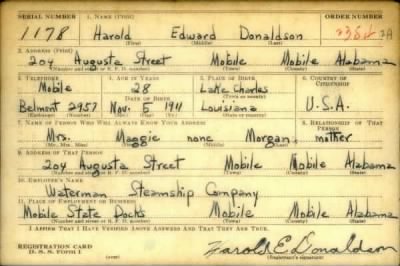 SERIAL NUMBER 1. NAME (Print) ORDER NUMBER
1178 Harold Edward Donaldson 2A
(First) (Middle) (Last)
2. ADDRESS (Print)
204 Augusta Street Mobile Mobile Alabama
(Number and street or R. F. D. number) (Town) (County) (State)
3. TELEPHONE 4. AGE IN YEARS 5. PLACE OF BIRTH 6. COUNTRY OF CITIZENSHIP
Mobile 28 Lake Charles
DATE OF BIRTH (Town or county)
Belmont 2957 Nov. 5 1911 Louisiana U.S.A.
(Exchange) (Number) (Mo.) (Day) (Yr.) (State or country)
7. NAME OF PERSON WHO WILL ALWAYS KNOW YOUR ADDRESS 8. RELATIONSHIP OF THAT PERSON
Mrs. Maggie none Morgan, mother
(Mr., Mrs., Miss) (First) (Middle) (Last)
9. ADDRESS OF THAT PERSON
204 Augusta Street Mobile Mobile Alabama
(Number and street or R. F. D. number) (Town) (County) (State)
10. EMPLOYER'S NAME
Waterman Steamship Company
11. PLACE OF EMPLOYMENT OR BUSINESS
Mobile State Docks Mobile Mobile Alabama
(Number and street or R. F. D. number) (Town) (County) (State)
I AFFIRM THAT I HAVE VERIFIED ABOVE ANSWERS AND THAT THEY ARE TRUE.
REGISTRATION CARD
D. S. S. FORM 1 Harold E Donaldson
(Registrant's signature)